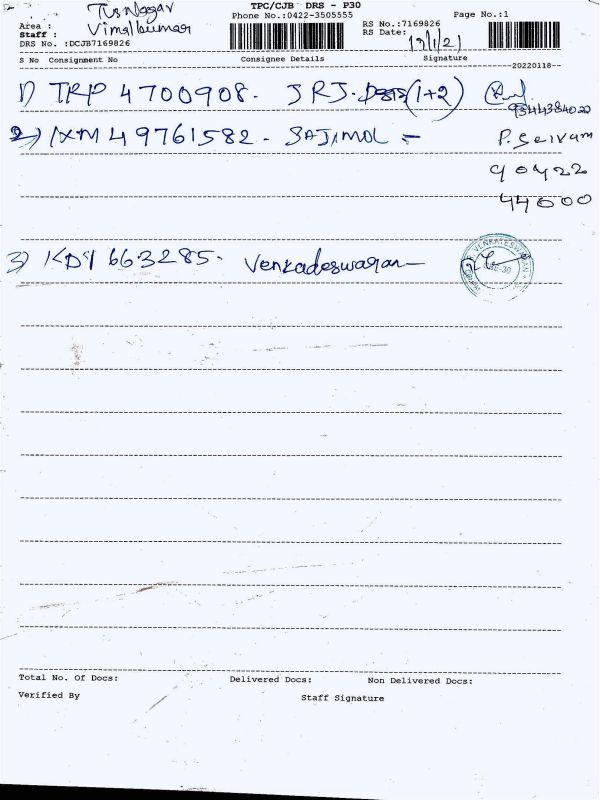 TPC/CJB DRS - P30
Phone No.:0422-3505555
Page No.:1
Area : TVS Nagar
RS No.:7169826
Staff : Vimalkumar
RS Date: 19/1/21
DRS No. :DCJB7169826
S No Consignment No Consignee Details Signature
20220118
1) TRP 4700908. JRJ. (1+2)
9344384022
2) IXM 49761582 - SAJIMOL - P. Selvam
90422
44000
3) KDY 663285. Venkadeswaran
VENKATESWARAN
Total No. Of Docs: Delivered Docs: Non Delivered Docs:
Verified By Staff Signature